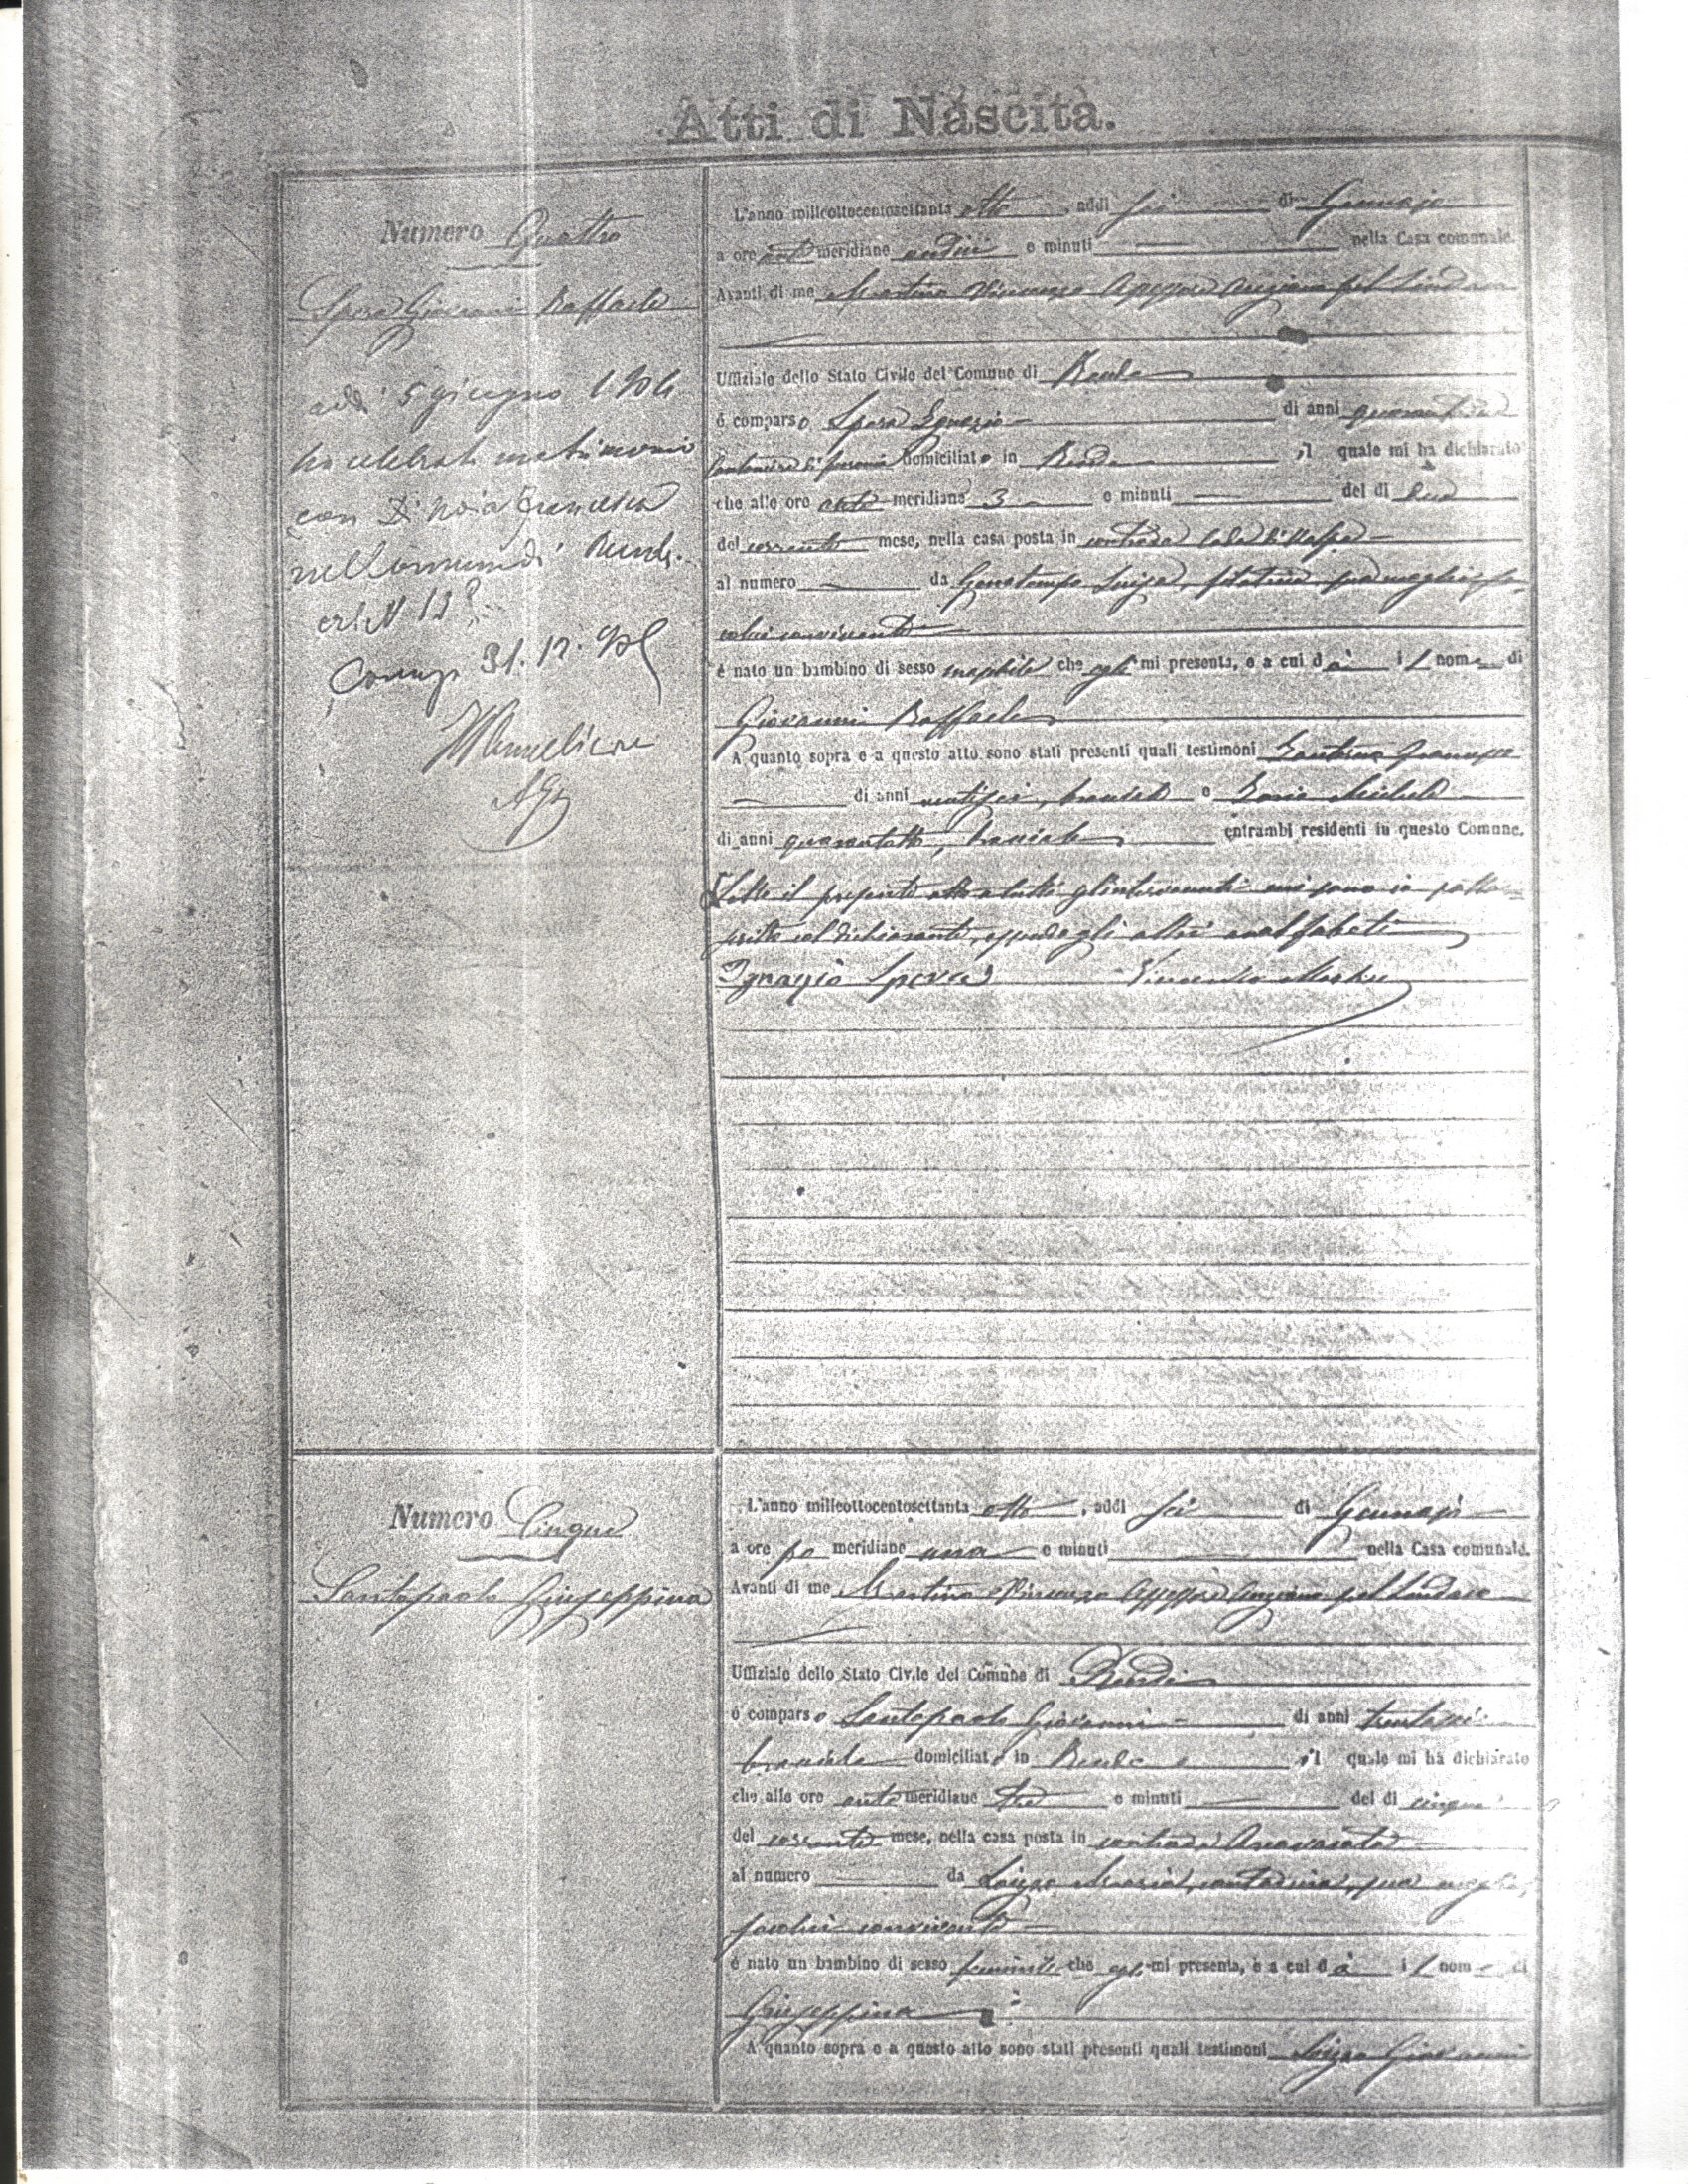 Atti di Nascita.
Numero Quattro
Spera Giovanni Raffaele
addì 5 giugno 1904
ha celebrato matrimonio
con Di Noia Francesca
nel Comune di Rende.
31.12.
L'anno milleottocentosettanta otto, addì sei di Gennajo
a ore ante meridiane undici e minuti nella Casa comunale.
Avanti di me Martino Vincenzo Assessore Anziano pel Sindaco
Uffiziale dello Stato Civile del Comune di Rende
è comparso Spera Ignazio di anni
domiciliato in Rende, il quale mi ha dichiarato
che alle ore ante meridiane 3 e minuti del dì due
del corrente mese, nella casa posta in contrada
al numero da Luigia, filatrice, sua moglie, se-
colui convivente
è nato un bambino di sesso maschile che egli mi presenta, e a cui dà il nome di
Giovanni Raffaele
A quanto sopra e a questo atto sono stati presenti quali testimoni
di anni ventisei, bracciale e Michele
di anni quarantotto, bracciale entrambi residenti in questo Comune.
Letto il presente atto a tutti gl'intervenuti mi sono io sotto-
scritto col dichiarante, essendo gli altri analfabeti
Ignazio Spera Vincenzo Martino
Numero Cinque
Santopaolo Giuseppina
L'anno milleottocentosettanta otto, addì sei di Gennajo
a ore po meridiane una e minuti nella Casa comunale.
Avanti di me Martino Vincenzo Assessore Anziano pel Sindaco
Uffiziale dello Stato Civile del Comune di Rende
è comparso Santopaolo Giovanni di anni trentasei
bracciale domiciliato in Rende, il quale mi ha dichiarato
che alle ore ante meridiane tre e minuti del dì cinque
del corrente mese, nella casa posta in contrada
al numero da Maria, contadina, sua moglie,
secolui convivente
è nato un bambino di sesso femminile che egli mi presenta, e a cui dà il nome di
Giuseppina
A quanto sopra e a questo atto sono stati presenti quali testimoni Giovanni